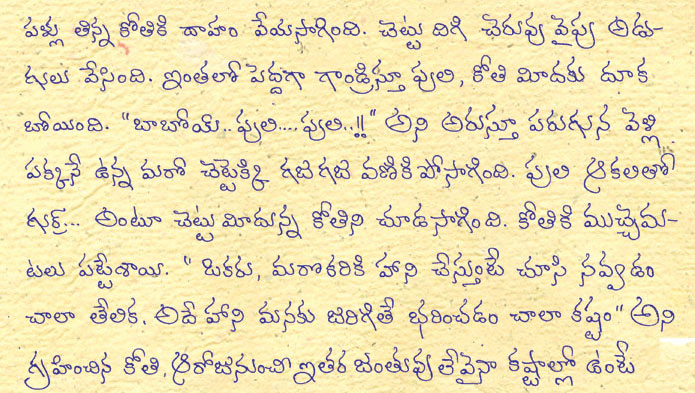 పళ్లు తిన్న కోతికి దాహం వేయసాగింది. చెట్టు దిగి చెరువు వైపు అడు-
గులు వేసింది. ఇంతలో పెద్దగా గాండ్రిస్తూ పులి, కోతి మీదకు దూక
బోయింది. "బాబోయ్.. పులి.... పులి..!!" అని అరుస్తూ పరుగున వెళ్లి
పక్కనే ఉన్న మరో చెట్టెక్కి గజగజ వణికి పోసాగింది. పులి ఆకలితో
గుర్ర్... అంటూ చెట్టు మీదున్న కోతిని చూడసాగింది. కోతికి ముచ్చెమ-
టలు పట్టేశాయి. " ఒకరు, మరొకరికి హాని చేస్తుంటే చూసి నవ్వడం
చాలా తేలిక. అదే హాని మనకు జరిగితే భరించడం చాలా కష్టం" అని
గ్రహించిన కోతి, ఆరోజునుంచి ఇతర జంతువు లేవైనా కష్టాల్లో ఉంటే